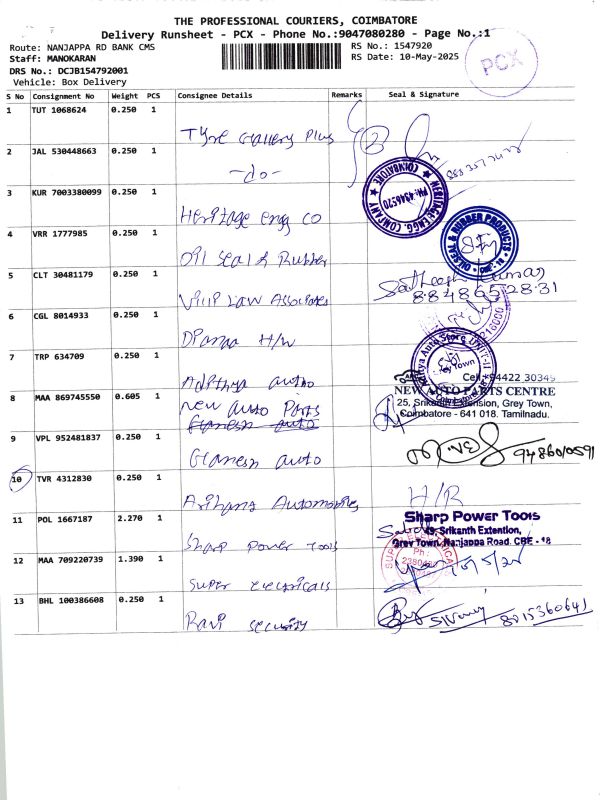 THE PROFESSIONAL COURIERS, COIMBATORE
Delivery Runsheet - PCX - Phone No.:9047080280 - Page No.:1
Route: NANJAPPA RD BANK CMS
RS No.: 1547920
Staff: MANOKARAN
RS Date: 10-May-2025
DRS No.: DCJB154792001
Vehicle: Box Delivery
PCX
S No Consignment No Weight PCS Consignee Details Remarks Seal & Signature
1 TUT 1068624 0.250 1
Tyre Gallery Plus
2 JAL 530448663 0.250 1
-do-
HERITAGE ENGG. COMPANY
COIMBATORE
PH: 4346520
3 KUR 7003380099 0.250 1
Heritage engg co
4 VRR 1777985 0.250 1
Oil Seal & Rubber
OIL SEAL & RUBBER PRODUCTS
5 CLT 30481179 0.250 1
Villp Law Associates
Satheesh Kumar
8848652831
6 CGL 8014933 0.250 1
H/W
7 TRP 634709 0.250 1
Adithya auto
Aditya Auto Store UNIT-II
Grey Town
8 MAA 869745550 0.605 1
New auto Parts
Ganesh auto
Cell: 94422 30345
NEW AUTO PARTS CENTRE
25, Srikanth Extension, Grey Town,
Coimbatore - 641 018. Tamilnadu.
9 VPL 952481837 0.250 1
Ganesh auto
9486010591
10 TVR 4312830 0.250 1
Arihant Automobiles
H/R
11 POL 1667187 2.270 1
Sharp Power Tools
Sharp Power Tools
49, Srikanth Extention,
Grey Town, Nanjappa Road, CBE - 18
12 MAA 709220739 1.390 1
Super electricals
SUPER ELECTRICALS
Ph :
13 BHL 100386608 0.250 1
Ravi security
8015360641